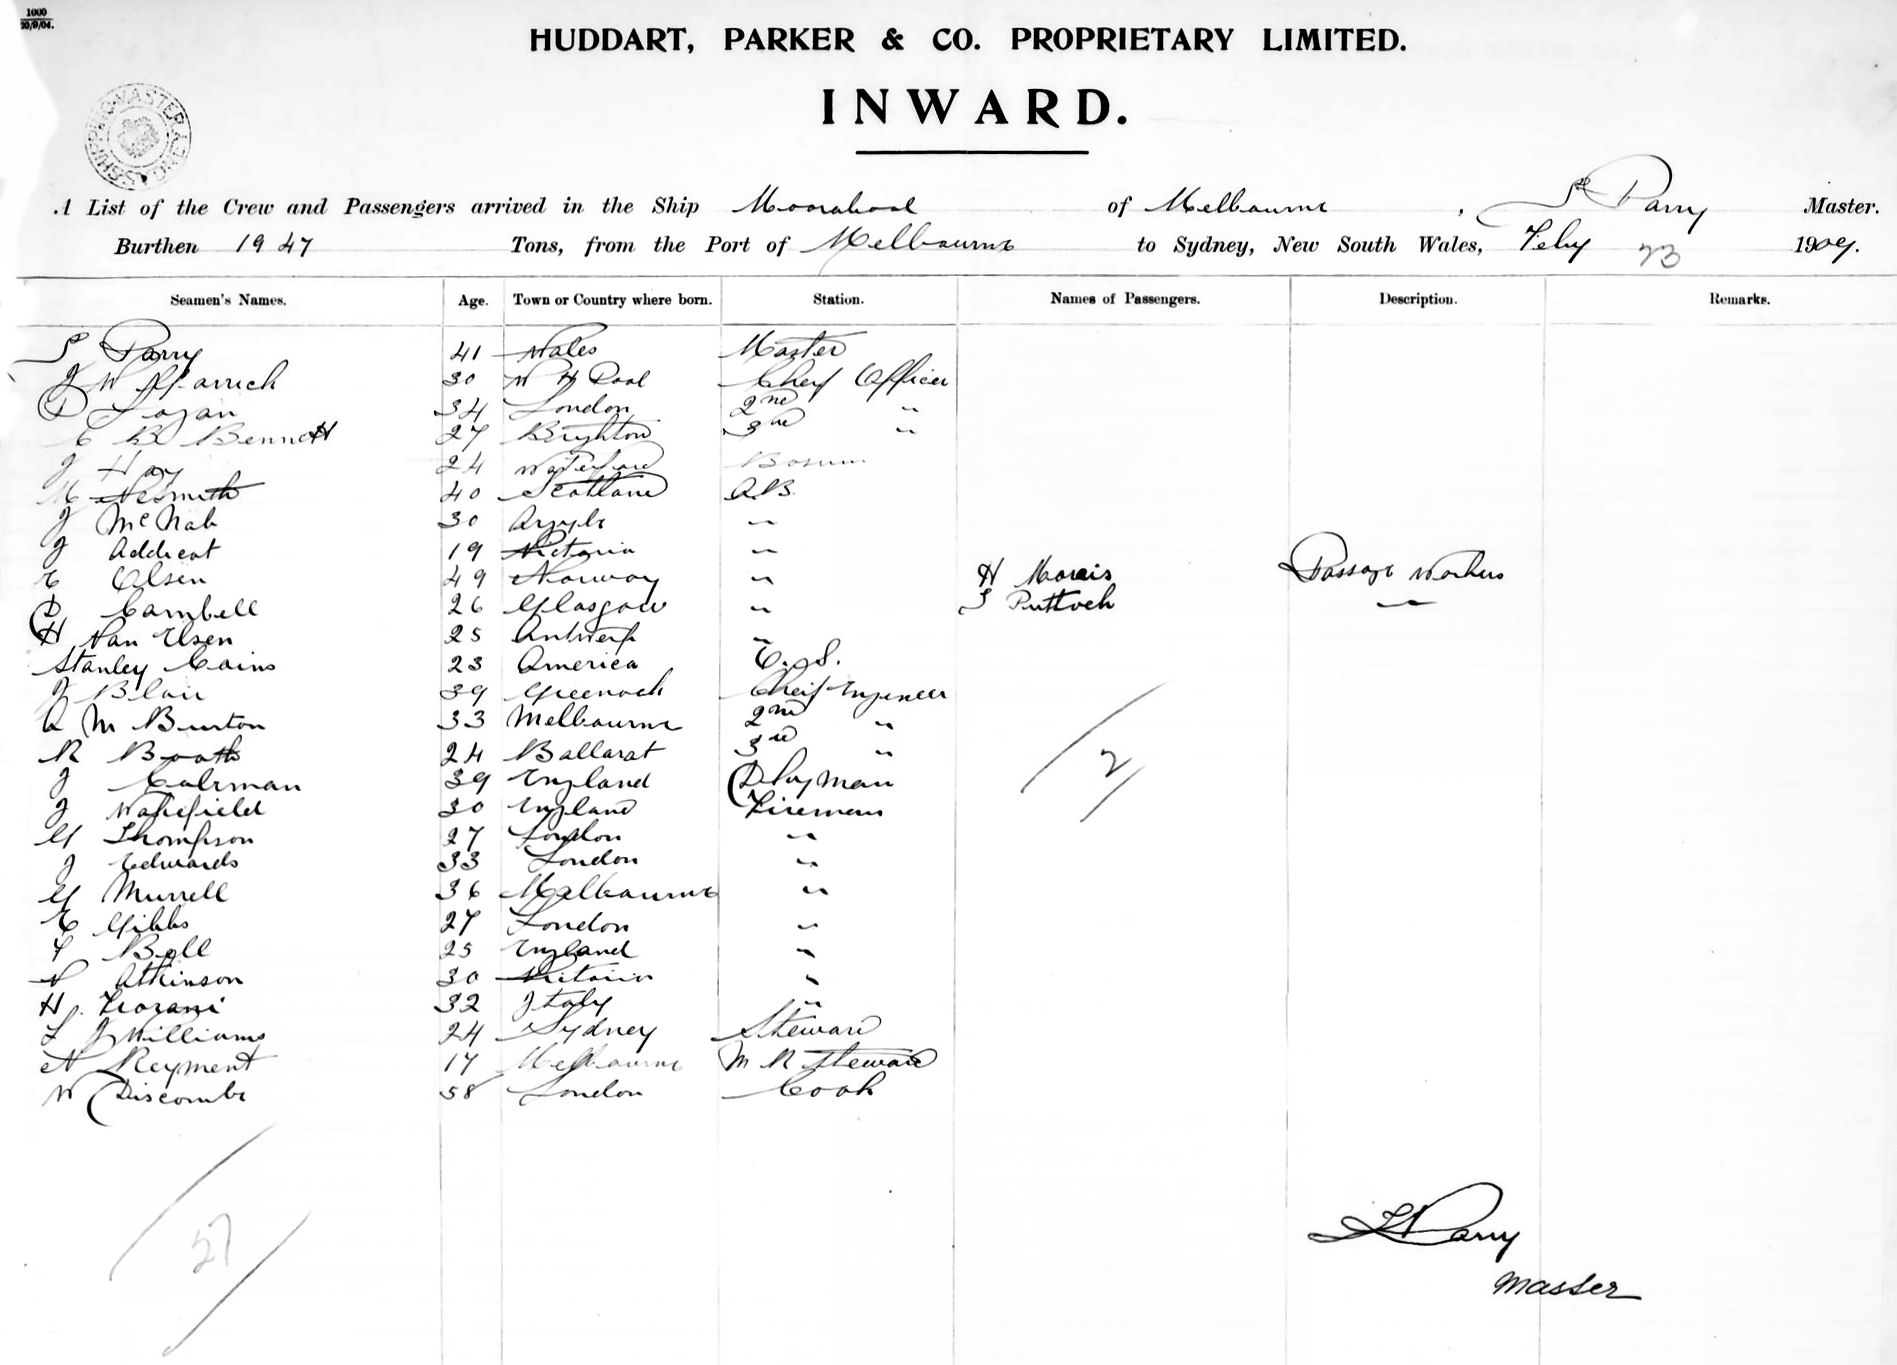 1000
20/9/04.
HUDDART, PARKER & CO. PROPRIETARY LIMITED.
INWARD.
SHIPPING MASTER
A List of the Crew and Passengers arrived in the Ship Moorabool of Melbourne, Parry Master.
Burthen 1947 Tons, from the Port of Melbourne to Sydney, New South Wales, Feby 23 1909.
Seamen's Names. Age. Town or Country where born. Station. Names of Passengers. Description. Remarks.
S Parry 41 Wales Master
J W 30 W H Pool Cheif Officer
D Logan 34 London 2nd "
E B Bennett 27 Brighton 3rd "
J Hay 24 Waterford Bosun
M Nesmith 40 Scotland A.B.
J McNab 30 Argyle "
J Addicot 19 Victoria "
E Olsen 49 Norway " H Morris Passage Workers
D Cambell 26 Glasgow " S Puttock "
H Van Elsen 25 Antwerp "
Stanley Cains 23 America O.S.
J Blair 39 Greenock Cheif Engineer
A M Burton 33 Melbourne 2nd "
R Booth 24 Ballarat 3rd "
J 39 England Dkyman
J Wakefield 30 England Fireman
G Thompson 27 London "
J Edwards 33 London "
G Murrell 36 Melbourne "
E Gibbs 27 London "
F Bell 25 England "
Atkinson 30 Victoria "
H. 32 Italy "
L J Williams 24 Sydney Steward
Reyment 17 Melbourne M R Steward
W Discombe 58 London Cook
2
27
Parry
Master